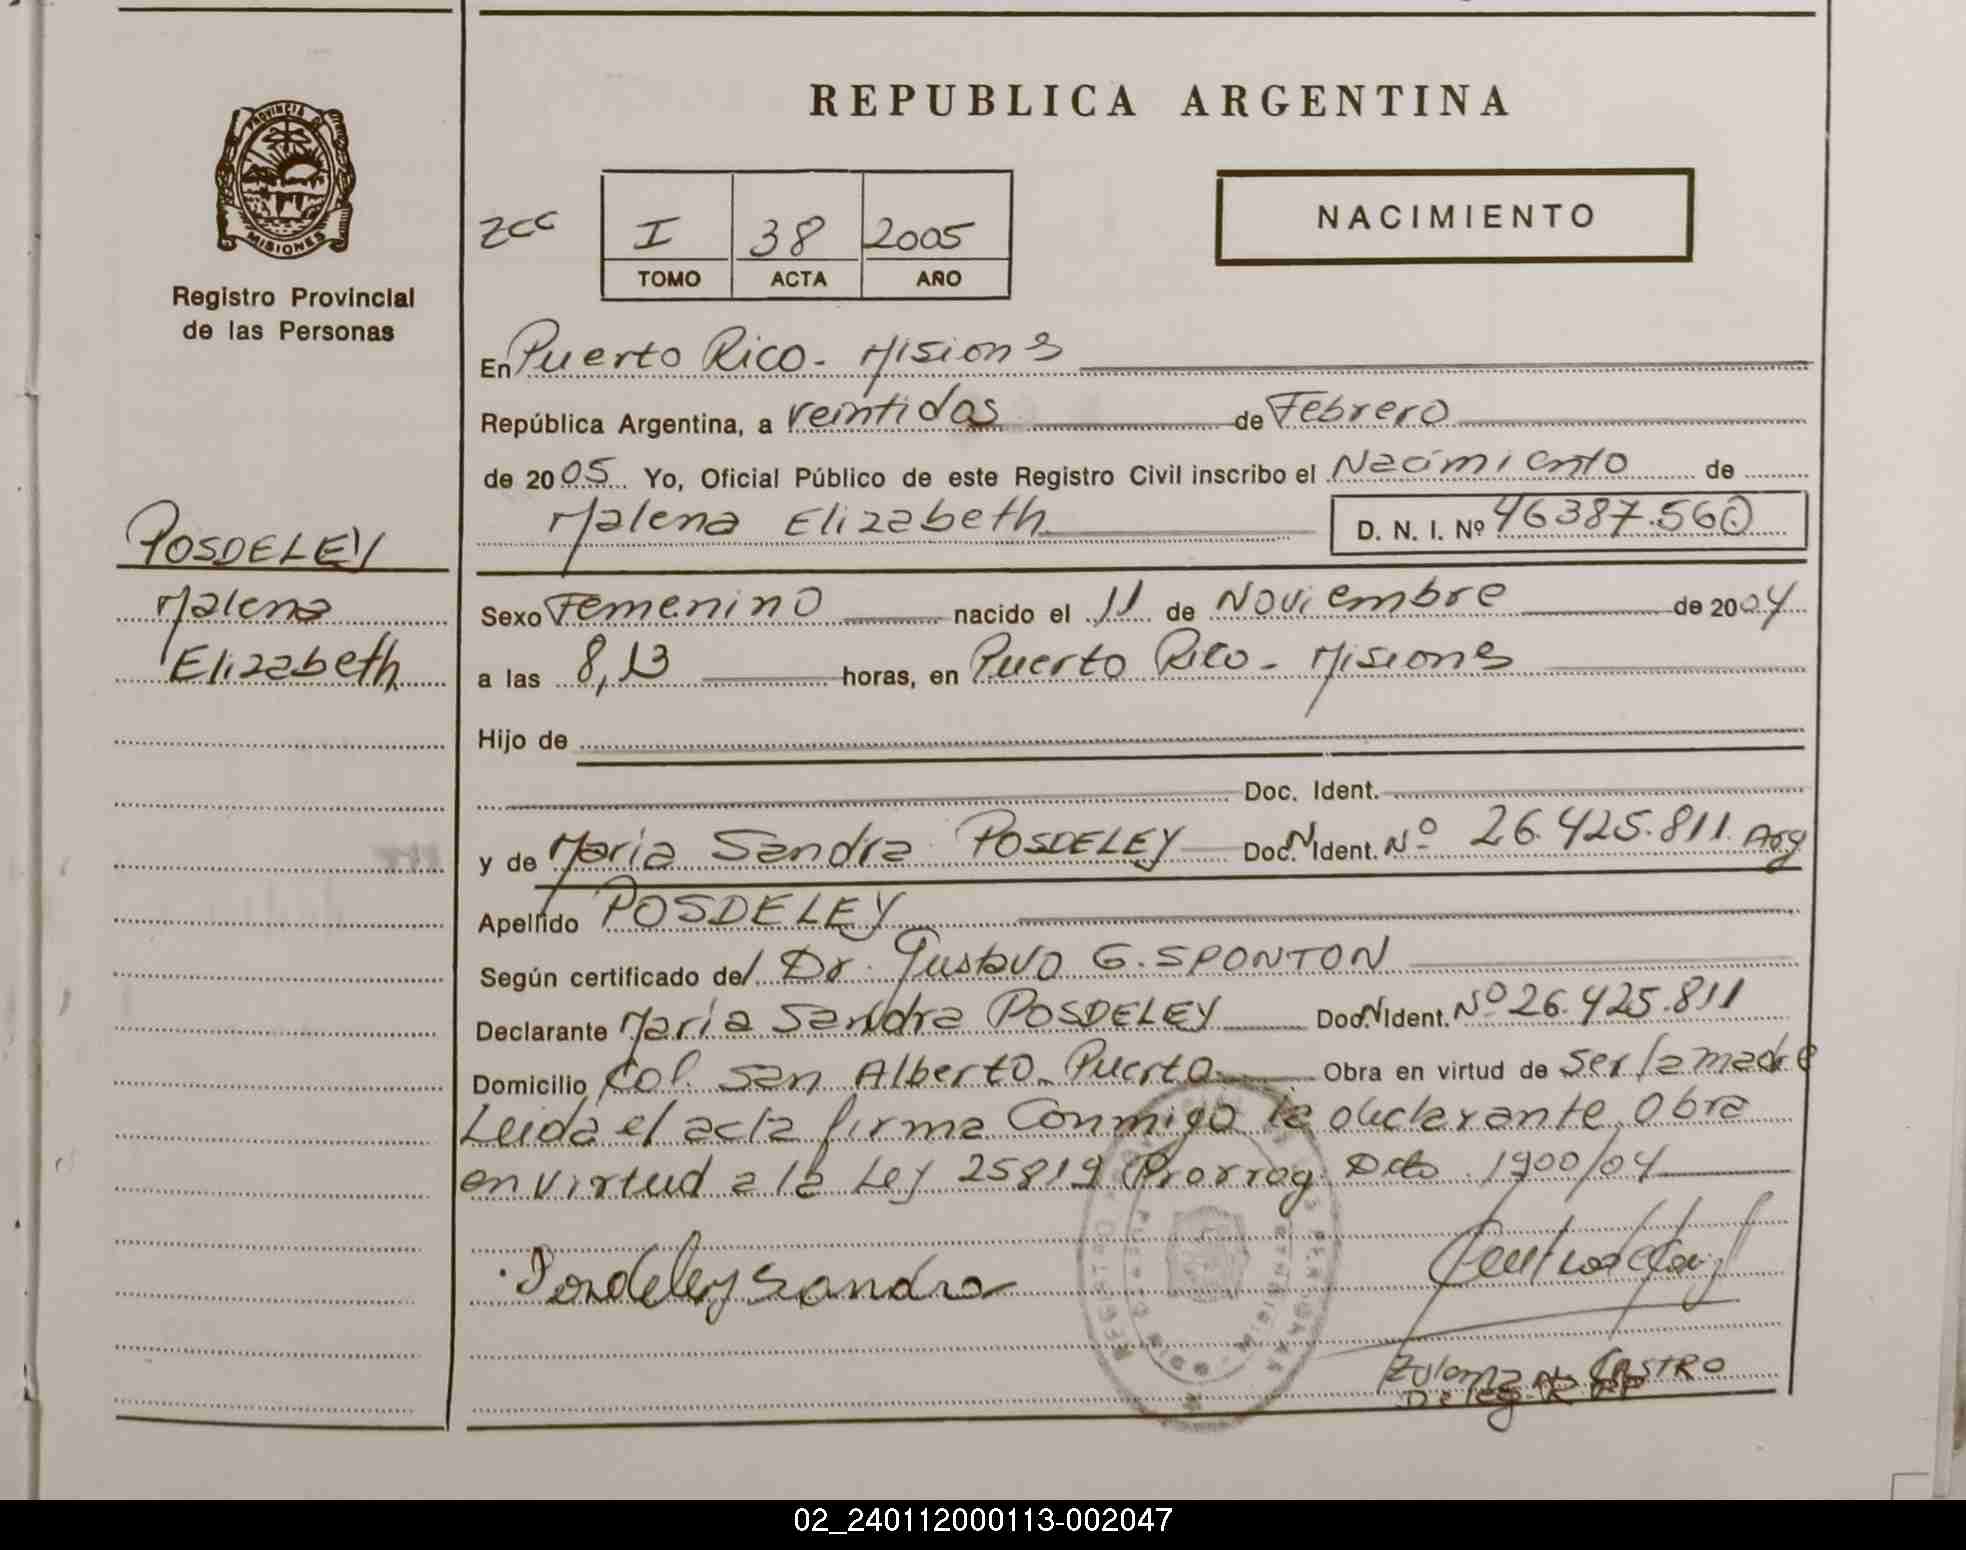 REPUBLICA ARGENTINA
PROVINCIA DE
MISIONES
Registro Provincial
de las Personas
zcc
I 38 2005
TOMO ACTA AÑO
NACIMIENTO
En Puerto Rico - Misiones
República Argentina, a veintidos de Febrero
de 2005 Yo, Oficial Público de este Registro Civil inscribo el Nacimiento de
Malena Elizabeth D. N. I. Nº 46387.560
POSDELEY
Malena
Elizabeth
Sexo Femenino nacido el 11 de Noviembre de 2004
a las 8,13 horas, en Puerto Rico - Misiones
Hijo de
Doc. Ident.
y de Maria Sandra POSDELEY Doc. N Ident. Nº 26.425.811 Arg
Apellido POSDELEY
Según certificado del Dr. Gustavo G. SPONTON
Declarante Maria Sandra POSDELEY Doc. N Ident. Nº 26.425.811
Domicilio Col. San Alberto - Puerto Obra en virtud de ser la madre
Leida el acta firma Conmigo la declarante, Obra
en virtud a la Ley 25819 Prorrog. Dcto 1900/04
Posdeley Sandra
Zulema CASTRO
Deleg.
02_240112000113-002047